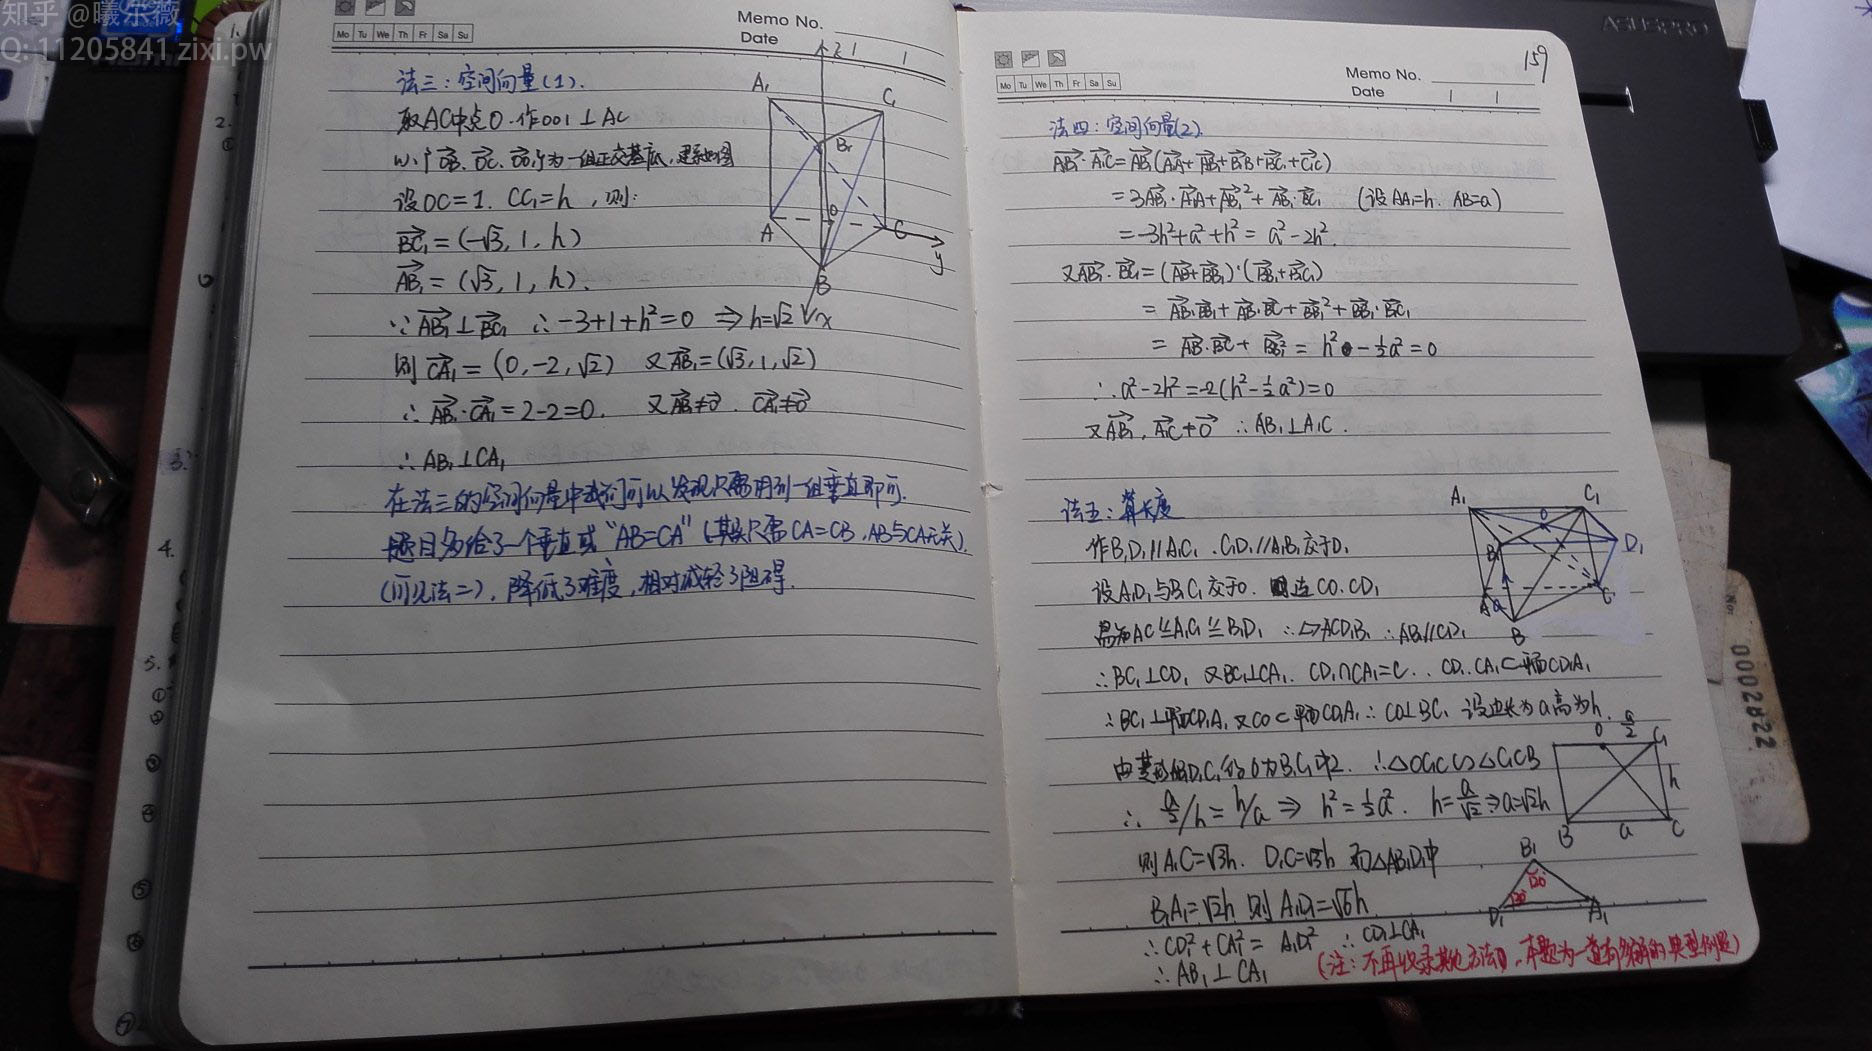 知乎 @曦尔薇
Q: 11205841 zixi.pw
Mo Tu We Th Fr Sa Su
Memo No.
Date
法三:空间向量(1).
取AC中点O.作OO1⊥AC
设OC=1. CC₁=h ,则:
BC₁=(-√3, 1, h)
AB₁=(√3, 1, h).
∵AB₁⊥BC₁ ∴-3+1+h²=0 ⇒h=√2
则 CA₁=(0,-2,√2) 又AB₁=(√3,1,√2)
∴AB₁·CA₁=2-2=0. 又AB₁≠0. CA₁≠0
∴AB₁⊥CA₁
在法三的空间向量中我们可以发现只需用到一组垂直即可.
题目多给了一个垂直或"AB=CA"(其实只需CA=CB,AB与CA无关).
(可见法二),降低了难度,相对减轻了阻碍.
A₁
C₁
B₁
A
O
C
B
x
y
z
2.
3.
4.
5.
①
②
③
④
⑤
⑥
⑦
159
Mo Tu We Th Fr Sa Su
Memo No.
Date
法四:空间向量(2).
AB₁·A₁C=AB₁(A₁A+AB₁+B₁B+BC₁+C₁C)
=3AB₁·A₁A+AB₁²+AB₁·BC₁ (设AA₁=h. AB=a)
=-3h²+a²+h²=a²-2h².
又AB₁·BC₁=(AB+BB₁)·(BB₁+B₁C₁)
=AB·BB₁+AB·BC+BB₁²+BB₁·B₁C₁
=AB·BC+BB₁²=h²-½a²=0
∴a²-2h²=-2(h²-½a²)=0
又AB₁,A₁C≠0 ∴AB₁⊥A₁C.
法五:算长度
作B₁D₁∥A₁C₁.C₁D₁∥A₁B₁交于D₁
设A₁D₁与B₁C₁交于O. 连CO.CD₁
易知AC≌A₁C₁≌B₁D₁ ∴▱ACD₁B₁ ∴AB₁∥CD₁
∴BC₁⊥CD₁ 又BC₁⊥CA₁. CD₁∩CA₁=C. CD₁,CA₁⊂平面CD₁A₁
∴BC₁⊥平面CD₁A₁ 又CO⊂平面CD₁A₁∴CO⊥BC₁ 设边长为a高为h.
∴△OC₁C∽△C₁CB
∴a/2/h=h/a⇒h²=½a². h=a/√2⇒a=√2h
则A₁C=√3h. D₁C=√3h 而△A₁B₁D₁中
B₁A₁=√2h 则A₁D₁=√6h
∴CD₁²+CA₁²=A₁D₁² ∴CD₁⊥CA₁
∴AB₁⊥CA₁
(注:不再收录其他方法,本题为一道有多解的典型例题)
A₁
C₁
O
B₁
D₁
A
a
C
B
O
a/2
C₁
h
B
a
C
B₁
120°
D₁
A₁
ASUSPRO
No:
0002822